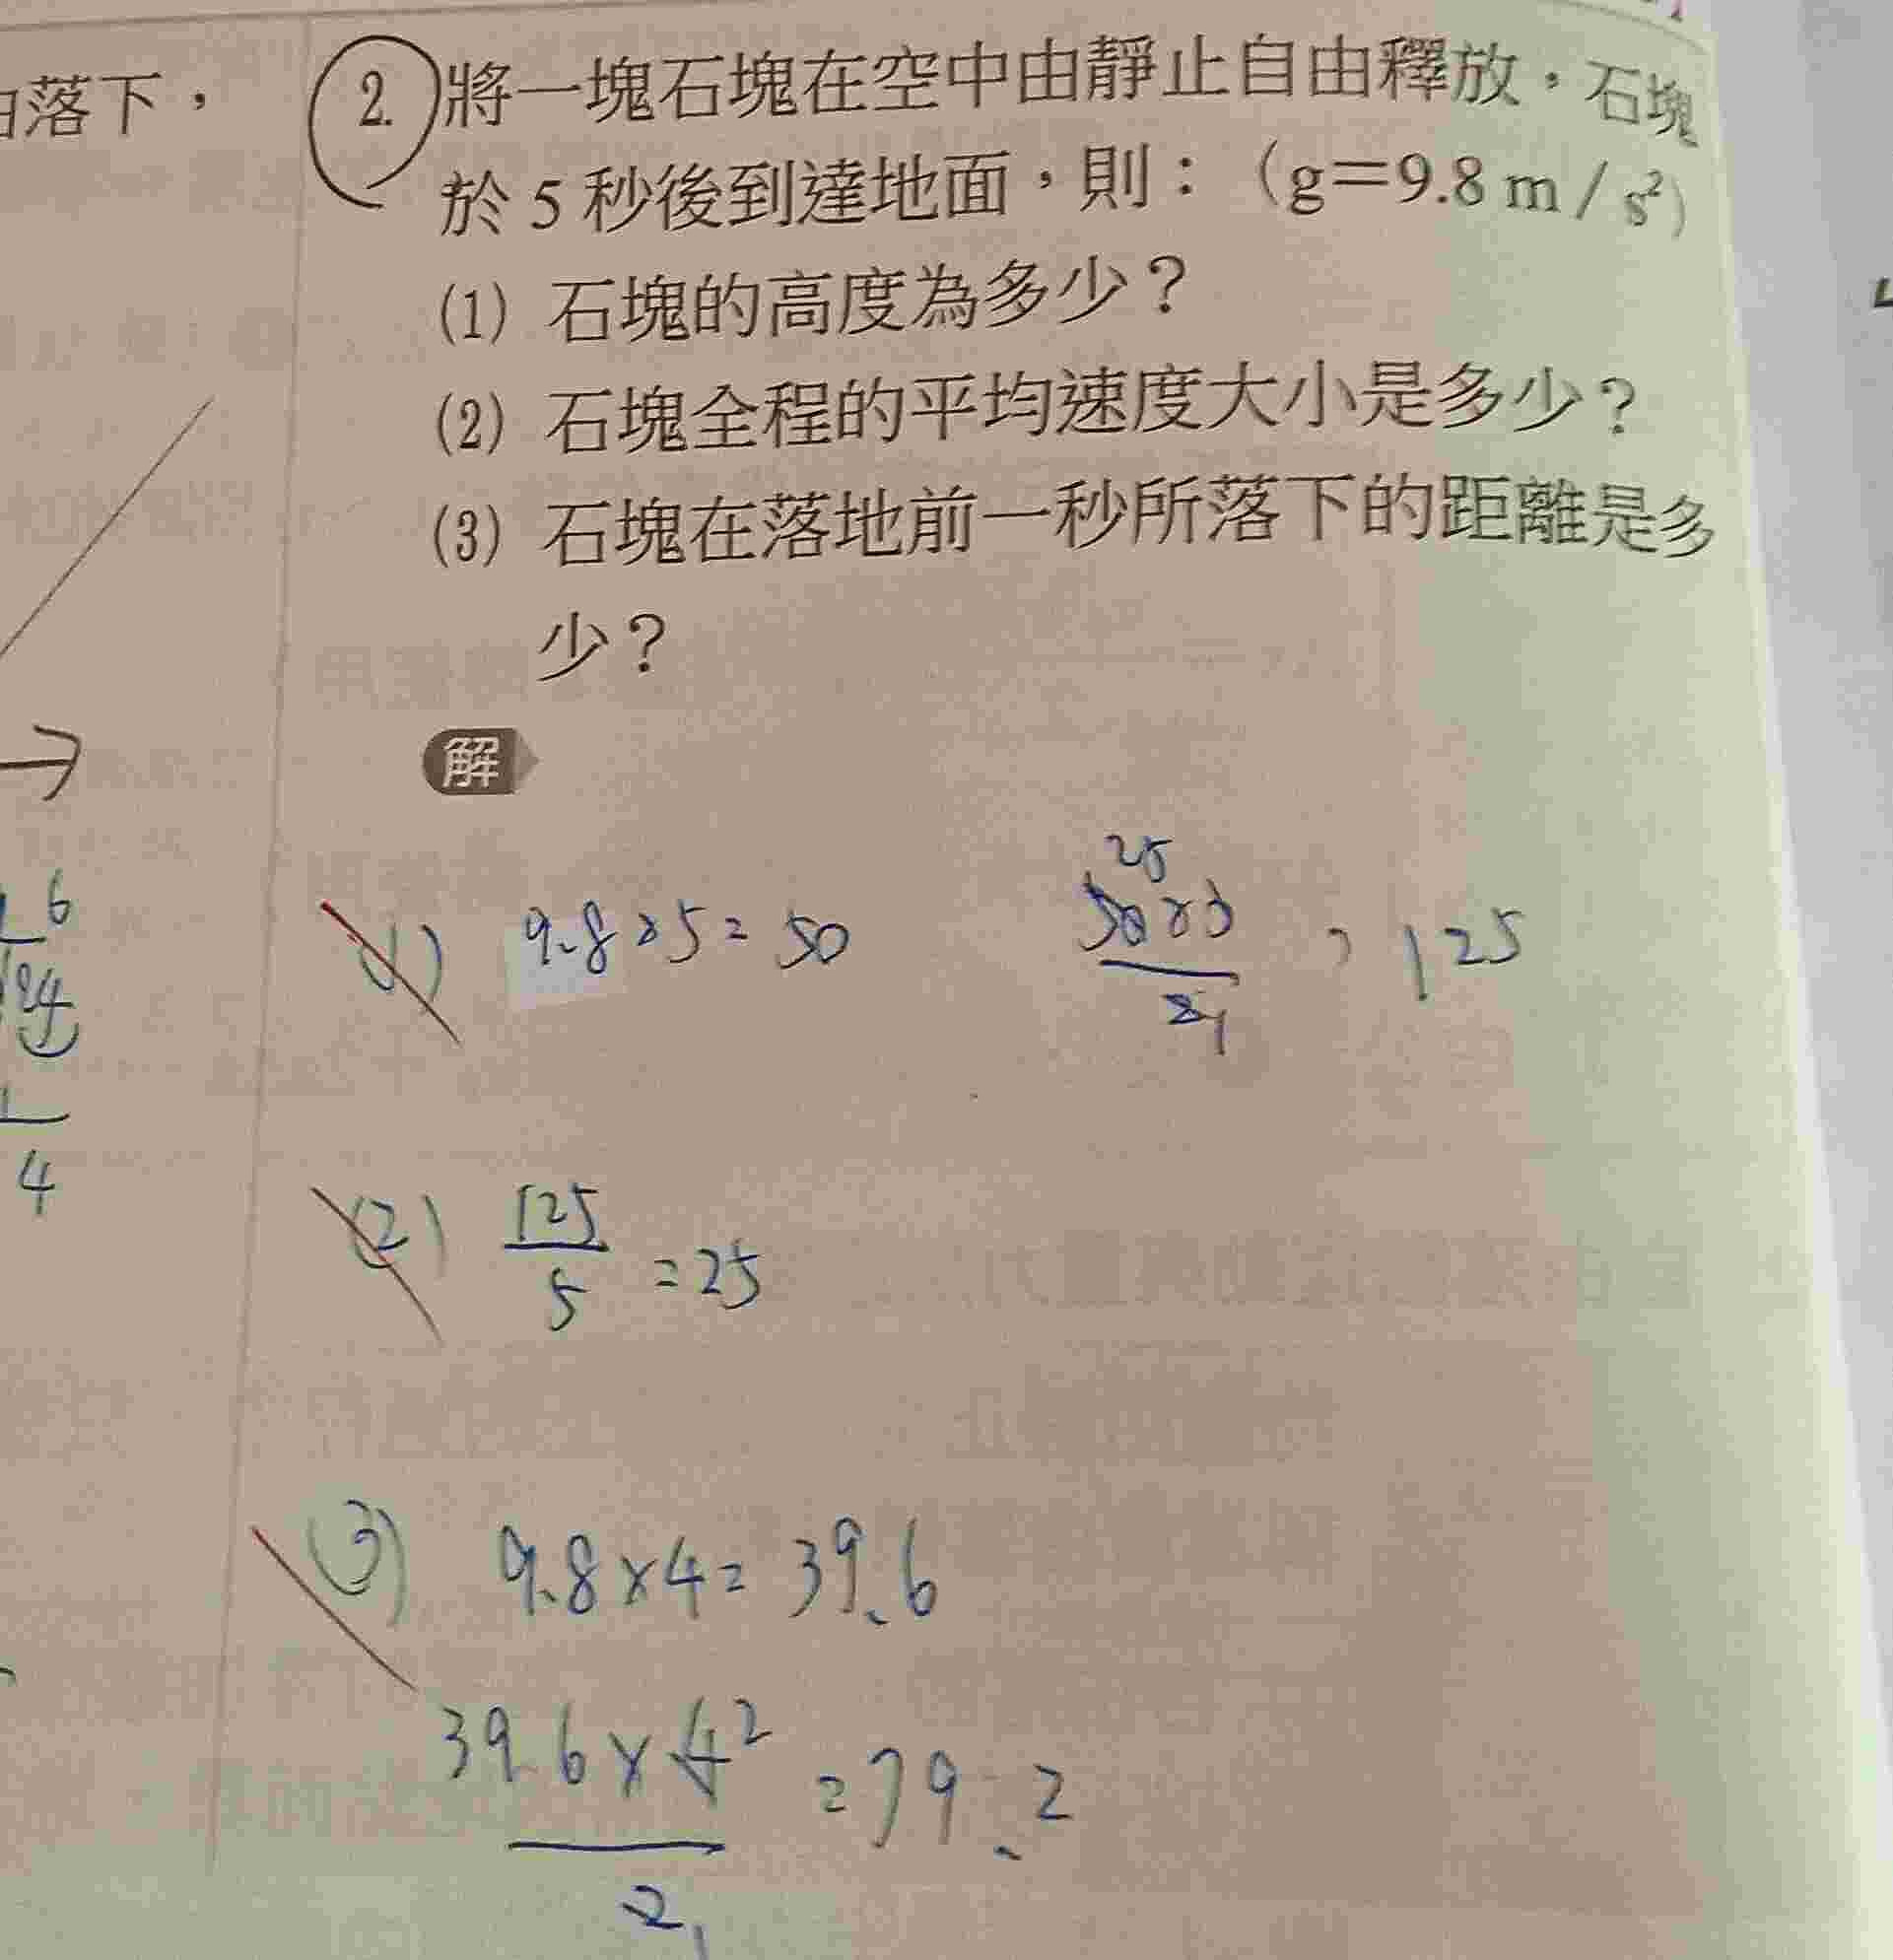 落下，
2. 將一塊石塊在空中由靜止自由釋放，石塊
於 5 秒後到達地面，則：（g＝9.8 m / s²）
(1) 石塊的高度為多少？
(2) 石塊全程的平均速度大小是多少？
(3) 石塊在落地前一秒所落下的距離是多
少？
解
(1) 9.8×5=50
25
50×5
2 1
125
(2) 125
5
=25
(3) 9.8×4=39.6
39.6×4 2
2 1
=79.2
6
4